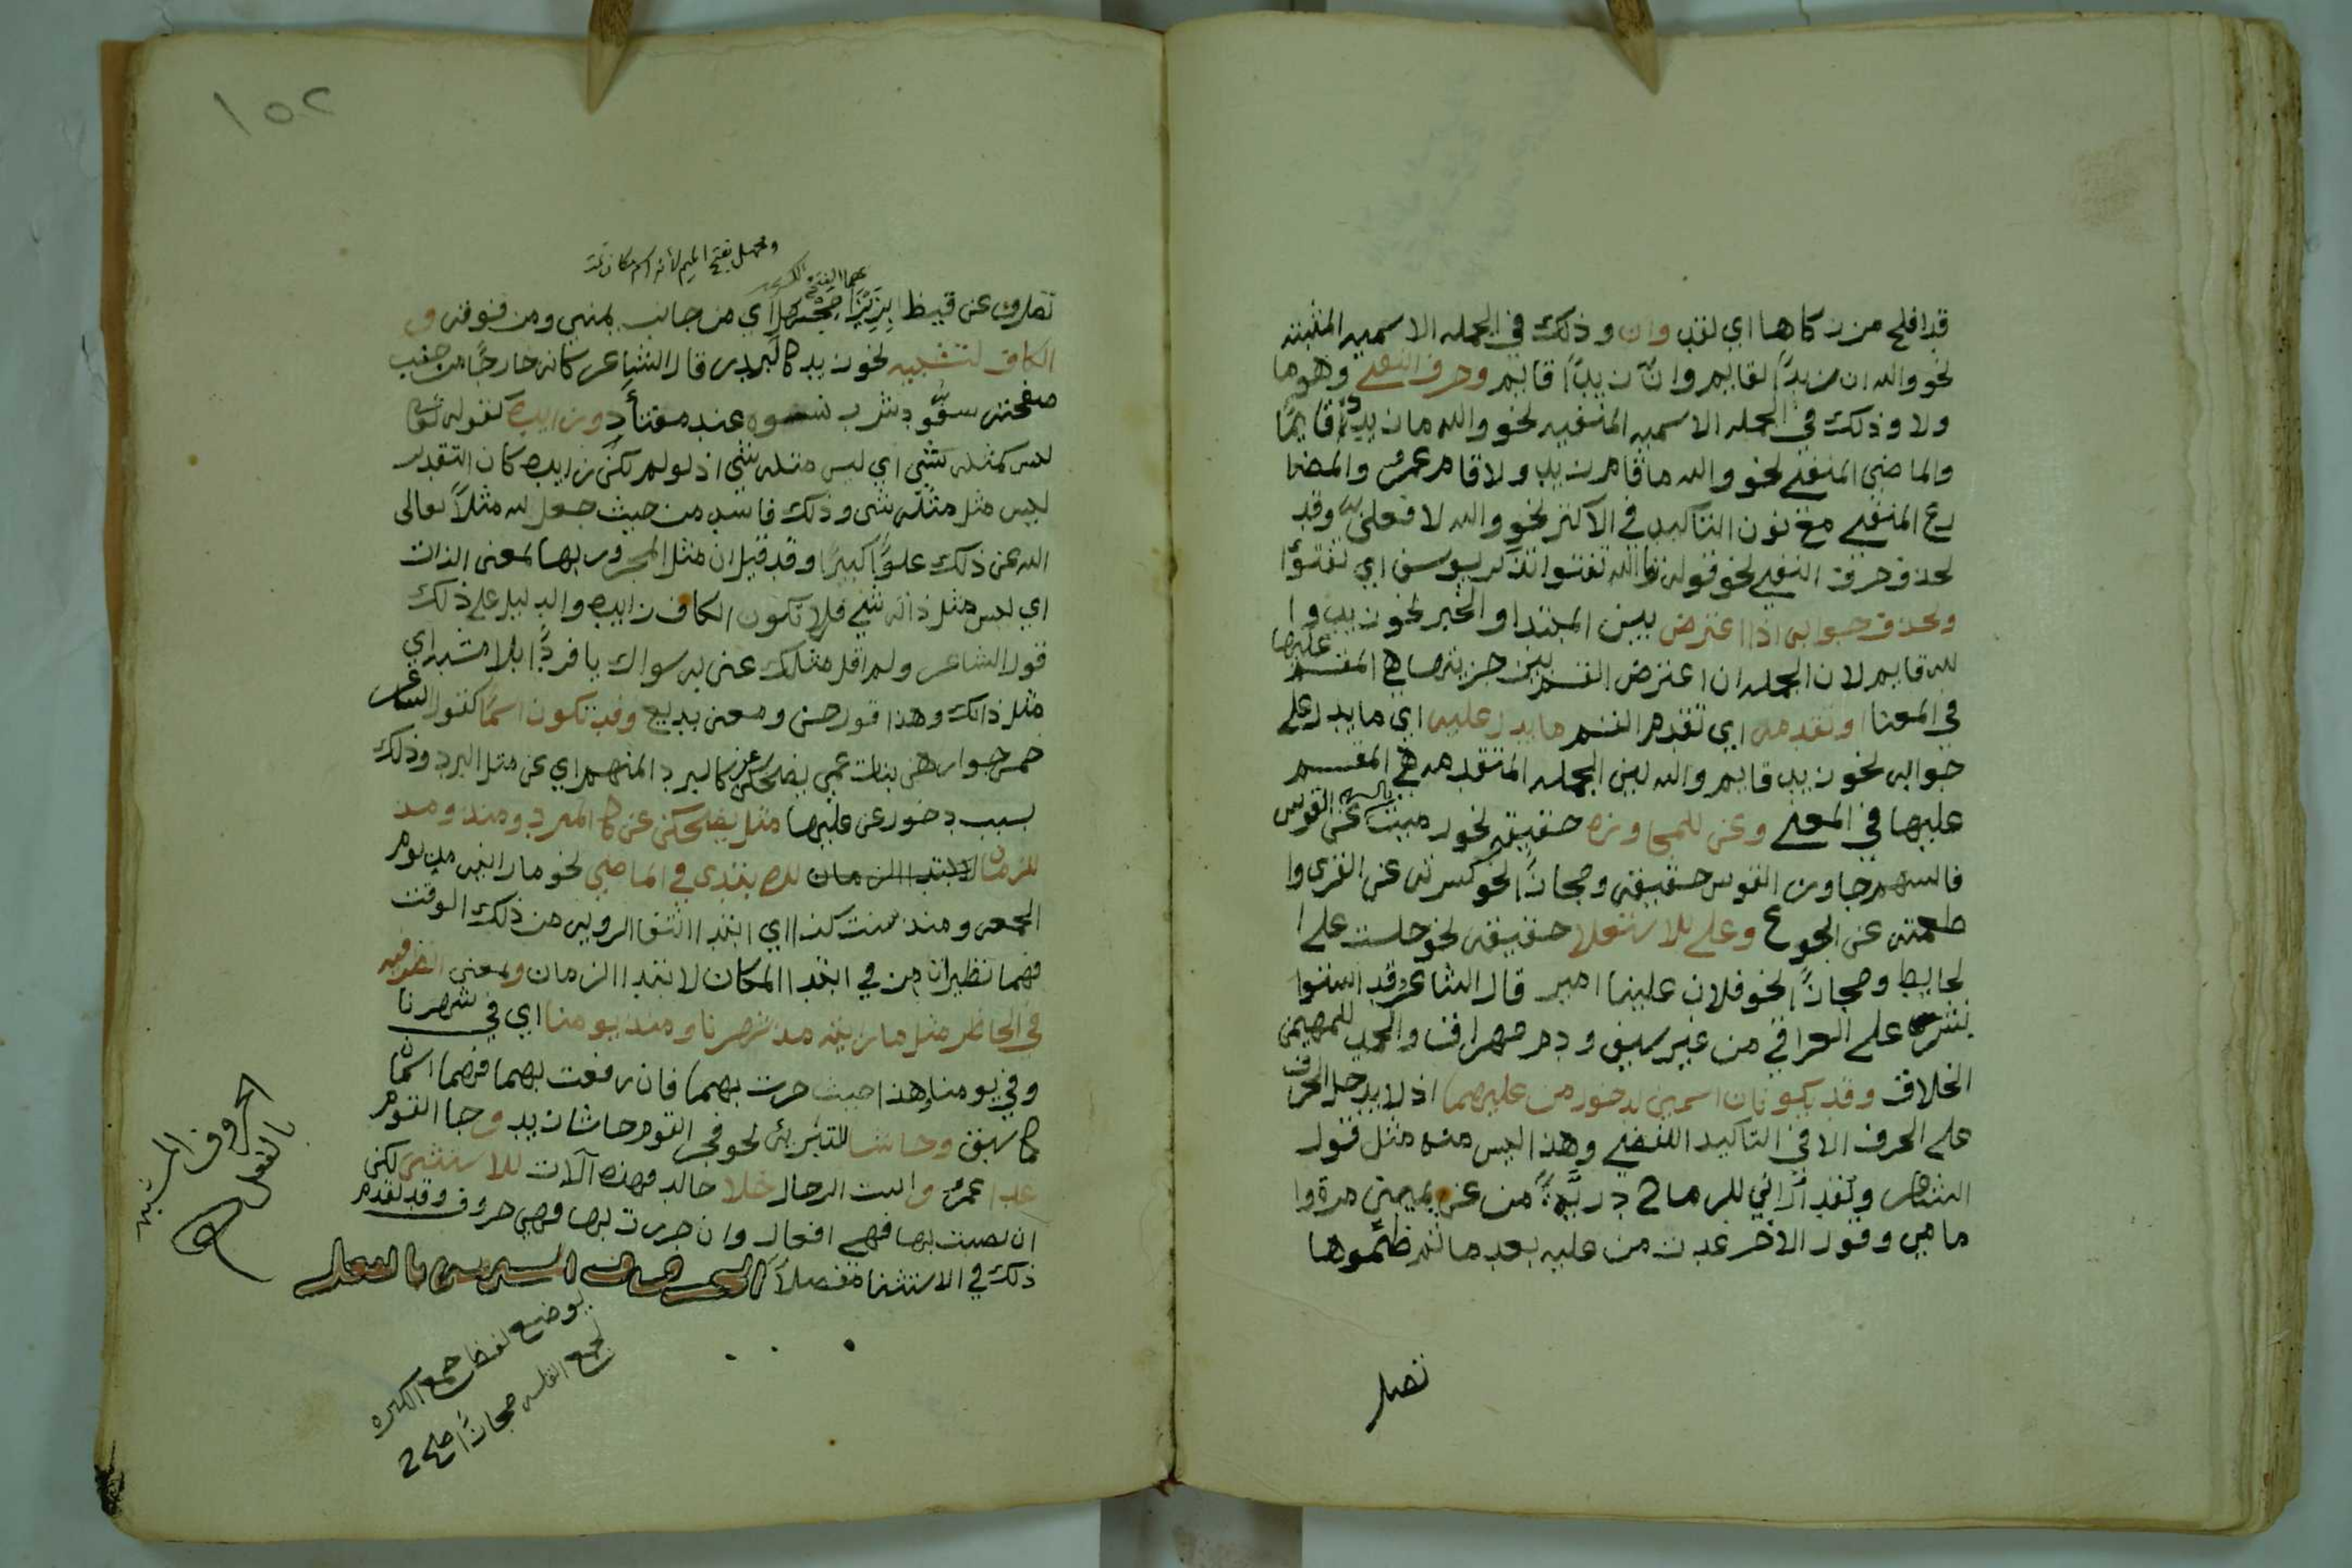 قد افلح من زكاها اي لقد وان وذلك في الجمله الاسميه المثبته
نحو والله ان زيدًا لقايم وانّ زيدًا قايم وحرف النفي وهو ما
ولا وذلك في الجمله الاسميه المنفيه نحو والله ما زيدٌ قايمًا
والماضي المنفي نحو والله ما قام زيد ولا قام عمرٌو والمضا
رع المنفي مع نون التاكيد في الاكثر نحو والله لا فعلن وقد
يحذف حرف النفي نحو قوله تعالى تالله تفتوا تذكر يوسف اي لا تفتوا
ويحذف جوابه اذا اعترض بين المبتدا والخبر نحو زيد وا
لله قايم لان الجمله ان اعترض القسم بين جزيتها هي المقسم عليها
في المعنا او تقدمه اي تقدم القسم ما يدل عليه اي ما يدل على
جوابه نحو زيد قايم والله لان الجمله المتقدمه هي المقسم
عليها في المعنى وعن للمجاوزه حقيقه نحو رميت بالسهم عن القوس
فالسهم جاوز القوس حقيقه ومجازًا نحو كسوته عن العري وا
طعمته عن الجوع وعلى للاستعلا حقيقه نحو جلست على ا
لحايط ومجازًا نحو فلان علينا امير قال الشاعر قد استوا
بشر على العراق من غير سيف ودم مهراق والحمد للمهيمن
الخلاق وقد يكونان اسمين لدخول من عليهما اذ لا يدخل الحرف
على الحرف الا في التاكيد اللفظي وهذا ليس منه مثل قول
الشاعر ولقد اراني للرماح دريَّةً من عن يميني مرة وا
مامي وقول الاخر غدت من عليه بعد ما تم ظمئوها
تصل
١٥٢
ومجهل بفتح الميم لانه اسم مكان
تصل وعن قيظ بزيزا مجهل اي من جانب يميني ومن فوقه و
الكاف لتشبيه نحو زيد كالبدر قال الشاعر كانه خارجًا من جنب
صفحته سفّود شرب نسوه عند مفتأد وزايده كقوله تعا
ليس كمثله شي اي ليس مثله شي اذ لو لم تكن زايده كان التقدير
ليس مثل مثله شي وذلك فاسد من حيث جعل لله مثلًا تعالى
الله عن ذلك علوًّا كبيرًا وقد قيل ان مثل المجرور بها بمعنى الذات
اي ليس مثل ذاته شي فلا تكون الكاف زايده والدليل على ذلك
قول الشاعر ولم اقل مثلك عني به سواك يا فردًا بلا مشبه اي
مثل ذاتك وهذا قول حسن ومعنى بديع وقد تكون اسمًا كقول الشاعر
خمس جوار هن بنات عمي يضحكن عن كالبرد المنهم اي عن مثل البرد وذلك
بسبب دخول عن عليها مثل يضحكن عن كالبرد ومذ ومنذ
للزمان للابتدا الزمان للابتدى في الماضي نحو ما رايته مذ يوم
الجمعه ومنذ سنت كذا اي ابتدا انتفا الرويه من ذلك الوقت
فهما نظيرتا من في ابتدا المكان لابتدا الزمان وبمعنى الظرفيه
في الحاضر مثل ما رايته مذ شهرنا ومنذ يومنا اي في شهرنا
وفي يومنا وهذا حيث جرت بهما فان رفعت بهما فهما اسمان
كما سبق وحاشا للتنزيه نحو فجر القوم حاشا زيد وجا القوم
عدا عمرٍو وانت الرجال خلا خالد فهذه الات للاستثنى لكن
ان نصبت بها فهي افعال وان جررت بها فهي حروف وقد تقدم
ذلك في الاستثنا مفصلًا الحروف المشبهه بالفعل
الحروف المشبهه
بالفعل
يوضع لفظ جمع الكثره
لجمع القله مجازًا صح